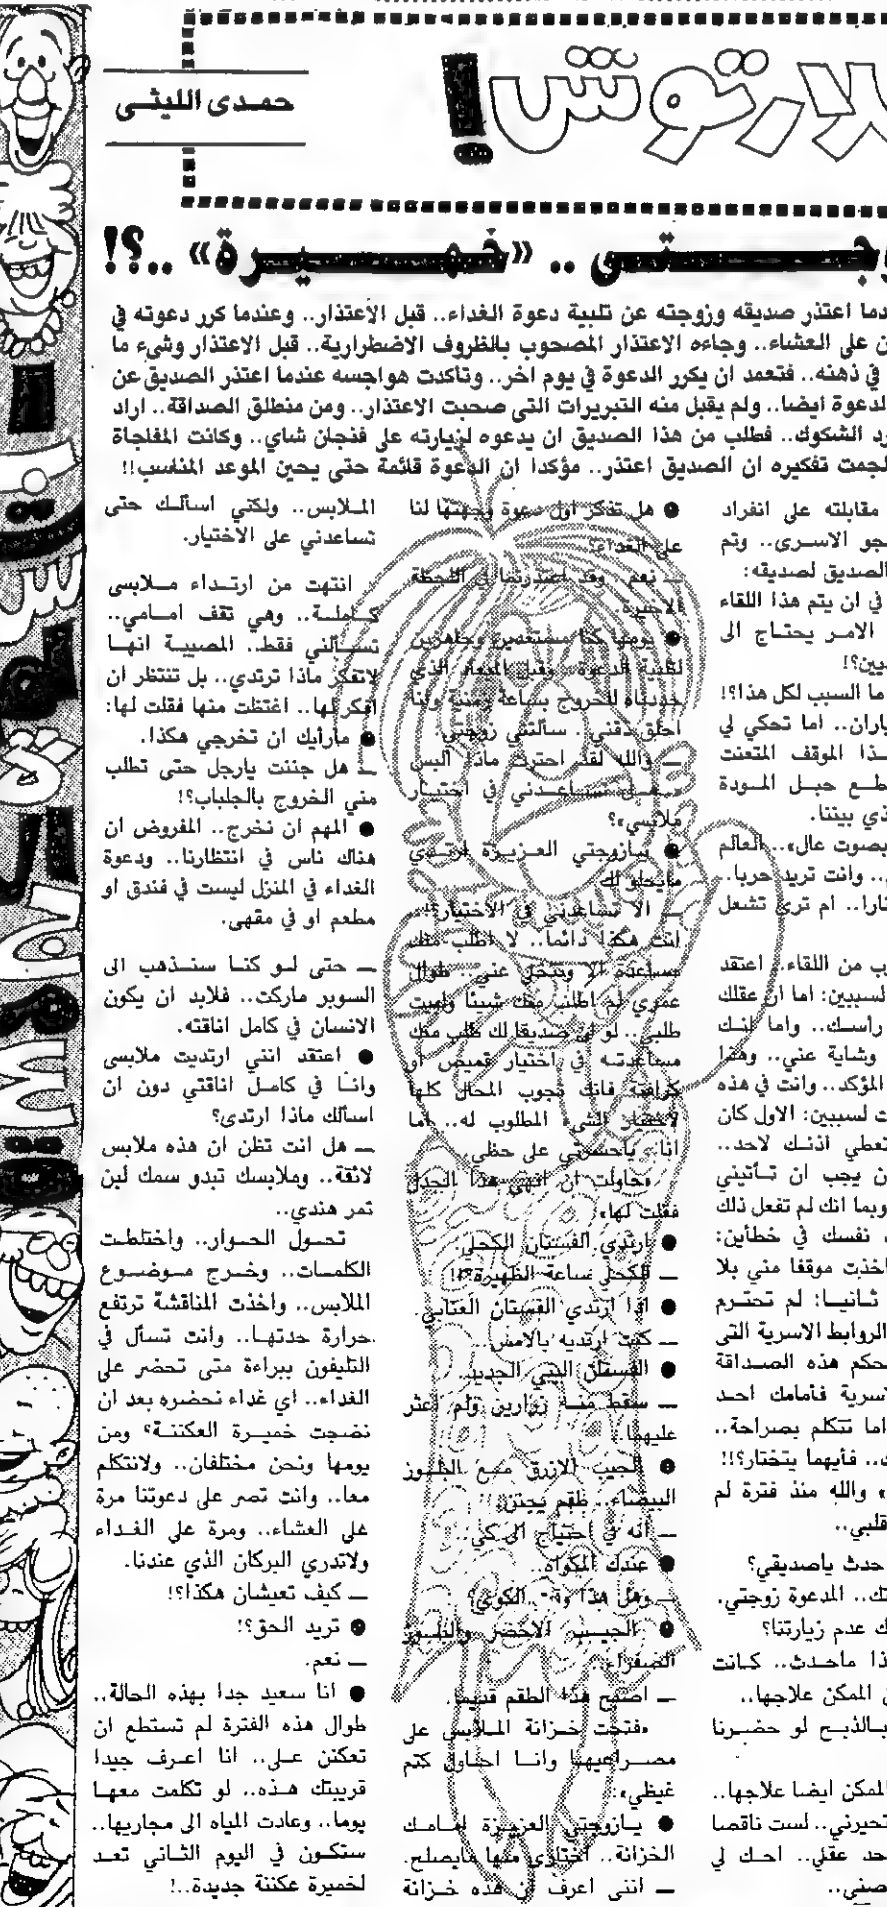 حمدى الليثى
بلارتوش!
زوجـــتى .. «خميرة» ..؟!
اعتذر صديقه وزوجته عن تلبية دعوة الغداء.. قبل الاعتذار.. وعندما كرر دعوته في
على العشاء.. وجاءه الاعتذار المصحوب بالظروف الاضطرارية.. قبل الاعتذار وشيء ما
في ذهنه.. فتعمد ان يكرر الدعوة في يوم اخر.. وتاكدت هواجسه عندما اعتذر الصديق عن
الدعوة ايضا.. ولم يقبل منه التبريرات التى صحبت الاعتذار.. ومن منطلق الصداقة.. اراد
الشكوك.. فطلب من هذا الصديق ان يدعوه لزيارته على فنجان شاي.. وكانت المفاجاة
الجمت تفكيره ان الصديق اعتذر.. مؤكدا ان الدعوة قائمة حتى يحين الموعد المناسب!!
مقابلته على انفراد
الاسـرى.. وتم
الصديق لصديقه:
في ان يتم هذا اللقاء
الامـر يحتـاج الى
ما السبب لكل هذا؟!
اما تحكي لي
الموقف المتعنت
حبـل المـودة
بيننا.
بصوت عال».. العالم
وانت تريد حربا..
نارا.. ام ترى تشعل
من اللقاء.. اعتقد
لسببين: اما ان عقلك
رأسـك.. واما انـك
وشاية عني.. وهذا
المؤكد.. وانت في هذه
لسببين: الاول كان
تعطي اذنـك لاحد..
يجب ان تـأتيني
وبما انك لم تفعل ذلك
نفسك في خطأين:
موقفا مني بلا
ثـانيـا: لم تحتـرم
الروابط الاسرية التى
هذه الصـداقة
فأمامك احـد
اما تتكلم بصراحة..
فأيهما يتختار؟!!
والله منذ فترة لم
قلبي..
حدث ياصديقي؟
المدعوة زوجتي.
عدم زيارتنا؟
ماحـدث.. كـانت
الممكن علاجها..
بـالذبـح لو حضـرنا
الممكن ايضا علاجها..
تحيرني.. لست ناقصا
عقلي.. احـك لي
● هل تذكر اول دعوة وجهتها لنا
على الغداء؟
ـ نعم.. وقد اعتذرتما في اللحظة
الاخيرة.
● يومها كنا مستعدين وجاهزين
لتلبية الدعوة.. وقبل الميعاد الذي
حددناه للخروج بساعة زمنية وانا
احلق ذقني.. سألتني زوجتي.
ـ والله لقد احترت ماذا البس
«هـل تسـاعـدني في اختيـار
ملابسي»؟
● يـازوجتي العـزيـزة ارتـدي
مايحلو لك.
ـ الا تساعدني في الاختيار؟..
انت هكذا دائما.. لا اطلب منك
مساعدة الا وتتخلى عني.. طوال
عمري لم اطلب منك شيئا ولبيت
طلبي.. لو ان صديقا لك طلب منك
مساعدتـه في اختيار قميص او
كرافتة فانك تجوب المحال كلها
لاحضار الشيء المطلوب له.. اما
انا.. ياحسرتي على حظي.
«حاولت ان انهي هذا الجدل
فقلت لها»
● ارتدي الفستان الكحلي.
ـ الكحلي ساعة الظهيرة؟!
● اذا ارتدي الفستان العنابي.
ـ كنت ارتديه بالامس..
● الفستان البني الجديد.
ـ سقط منـه زرارين ولم اعثر
عليهما.
● الجيب الازرق مـع البلـوز
البيضاء.. طقم يجنن..
ـ أنه في احتياج الى كي..
● عندك المكواة..
ـ وهل هذا وقت الكوي؟
● الجيـب الاخضر والبلـوز
الصفراء..
ـ اصبح هذا الطقم قديما.
«فتحت خـزانة المـلابس على
مصـراعيهـا وانـا احـاول كتم
غيظي»:
● يـازوجتي العزيـزة امـامـك
الخزانة.. اختاري منها مايصلح.
ـ انني اعرف ان هذه خـزانة
المـلابس.. ولكني اسألـك حتى
تساعدني على الاختيار.
انتهت من ارتـداء مـلابسى
كـاملـة.. وهي تقف امـامي..
تسـألني فقط.. المصيبـة انهـا
لاتفكر ماذا ترتدي.. بل تنتظر ان
افكر لها.. اغتظت منها فقلت لها:
● مارأيك ان تخرجي هكذا.
ـ هل جننت يارجل حتى تطلب
مني الخروج بالجلباب؟!
● المهم ان نخرج.. المفروض ان
هناك ناس في انتظارنا.. ودعوة
الغداء في المنزل ليست في فندق او
مطعم او في مقهى.
ـ حتى لـو كنـا سنـذهب الى
السوبر ماركت.. فلابد ان يكون
الانسان في كامل اناقته.
● اعتقد انني ارتديت ملابسى
وانـا في كامـل اناقتي دون ان
اسألك ماذا ارتدى؟
ـ هل انت تظن ان هذه ملابس
لائقة.. وملابسك تبدو سمك لبن
تمر هندي..
تحـول الحـوار.. واختلطـت
الكلمـات.. وخـرج مـوضـوع
الملابس.. واخذت المناقشة ترتفع
حرارة حدتهـا.. وانت تسـأل في
التليفون ببراءة متى تحضر على
الغداء.. اي غداء نحضره بعد ان
نضجت خميـرة العكننـة؟ ومن
يومها ونحن مختلفان.. ولانتكلم
معا.. وانت تصر على دعوتنا مرة
على العشاء.. ومرة على الغـداء
ولاتدري البركان الذي عندنا.
ـ كيف تعيشان هكذا؟!
● تريد الحق؟!
ـ نعم.
● انا سعيد جدا بهذه الحالة..
طوال هذه الفترة لم تستطع ان
تعكنن عـلى.. انا اعـرف جيدا
قريبتك هـذه.. لو تكلمت معهـا
يوما.. وعادت المياه الى مجاريها..
ستكـون في اليوم الثـاني تعـد
لخميرة عكننة جديدة..!